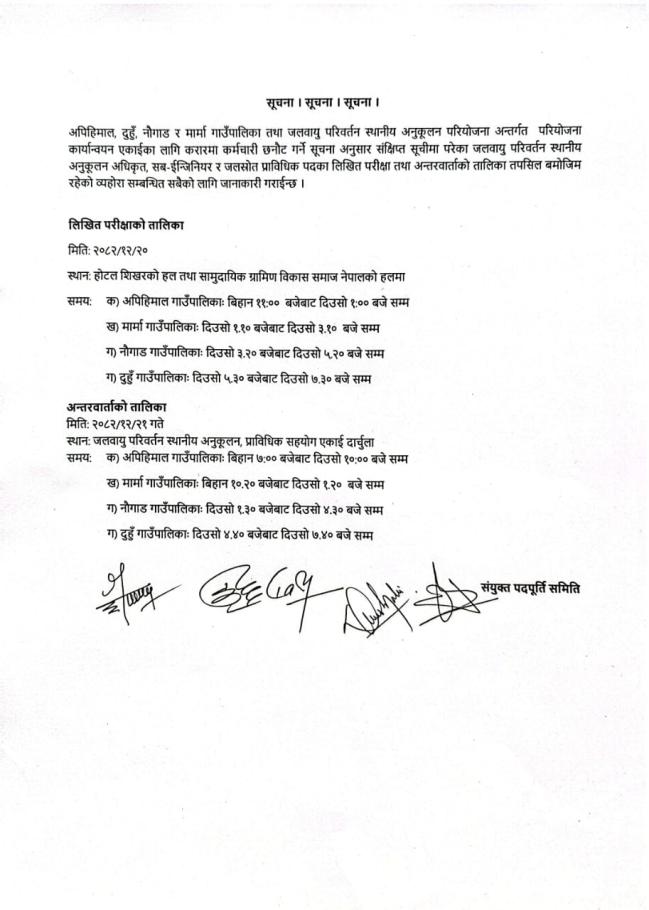 सूचना । सूचना । सूचना ।
अपिहिमाल, दुहुँ, नौगाड र मार्मा गाउँपालिका तथा जलवायु परिवर्तन स्थानीय अनुकूलन परियोजना अन्तर्गत परियोजना
कार्यान्वयन एकाईका लागि करारमा कर्मचारी छनौट गर्ने सूचना अनुसार संक्षिप्त सूचीमा परेका जलवायु परिवर्तन स्थानीय
अनुकूलन अधिकृत, सब-ईन्जिनियर र जलस्रोत प्राविधिक पदका लिखित परीक्षा तथा अन्तरवार्ताको तालिका तपसिल बमोजिम
रहेको व्यहोरा सम्बन्धित सबैको लागि जानकारी गराईन्छ ।
लिखित परीक्षाको तालिका
मिति: २०८२/१२/२०
स्थान: होटल शिखरको हल तथा सामुदायिक ग्रामिण विकास समाज नेपालको हलमा
समय: क) अपिहिमाल गाउँपालिकाः बिहान ११:०० बजेबाट दिउसो १:०० बजे सम्म
ख) मार्मा गाउँपालिकाः दिउसो १.१० बजेबाट दिउसो ३.१० बजे सम्म
ग) नौगाड गाउँपालिकाः दिउसो ३.२० बजेबाट दिउसो ५.२० बजे सम्म
ग) दुहुँ गाउँपालिकाः दिउसो ५.३० बजेबाट दिउसो ७.३० बजे सम्म
अन्तरवार्ताको तालिका
मिति: २०८२/१२/२१ गते
स्थान: जलवायु परिवर्तन स्थानीय अनुकूलन, प्राविधिक सहयोग एकाई दार्चुला
समय: क) अपिहिमाल गाउँपालिकाः बिहान ७:०० बजेबाट दिउसो १०:०० बजे सम्म
ख) मार्मा गाउँपालिकाः बिहान १०.२० बजेबाट दिउसो १.२० बजे सम्म
ग) नौगाड गाउँपालिकाः दिउसो १.३० बजेबाट दिउसो ४.३० बजे सम्म
ग) दुहुँ गाउँपालिकाः दिउसो ४.४० बजेबाट दिउसो ७.४० बजे सम्म
संयुक्त पदपूर्ति समिति